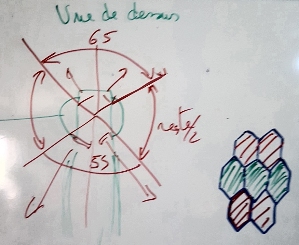 Vue de dessus
65
reste/2
55